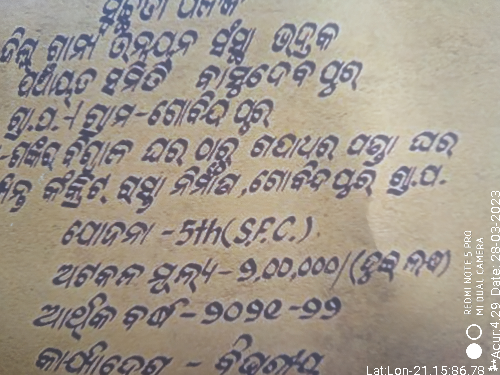 ସୂଚନା ଫଳକ
ଜିଲ୍ଲା ଗ୍ରାମ୍ୟ ଉନ୍ନୟନ ସଂସ୍ଥା ଭଦ୍ରକ
ପଞ୍ଚାୟତ ସମିତି ବାସୁଦେବପୁର
ଗ୍ରା.ପ.-/ ଗ୍ରାମ-ଗୋବିନ୍ଦପୁର
ବିଶ୍ୱାଳ ଘର ଠାରୁ ଗଦାଧର ପଣ୍ଡା ଘର
କଂକ୍ରିଟ୍ ରାସ୍ତା ନିର୍ମାଣ,ଗୋବିନ୍ଦପୁର ଗ୍ରା.ପ.
ଯୋଜନା -5th(S.F.C.)
ଅଟକଳ ମୂଲ୍ୟ-୨,00,000/(ଦୁଇ ଲକ୍ଷ)
ଆର୍ଥିକ ବର୍ଷ-୨୦୨୧-୨୨
କାର୍ଯ୍ୟାଦେଶ - ବିଭାଗୀୟ
REDMI NOTE 5 PRO
MI DUAL CAMERA
Acur:4.29 Date:28-03-2023
Lat:Lon-21.15:86.78